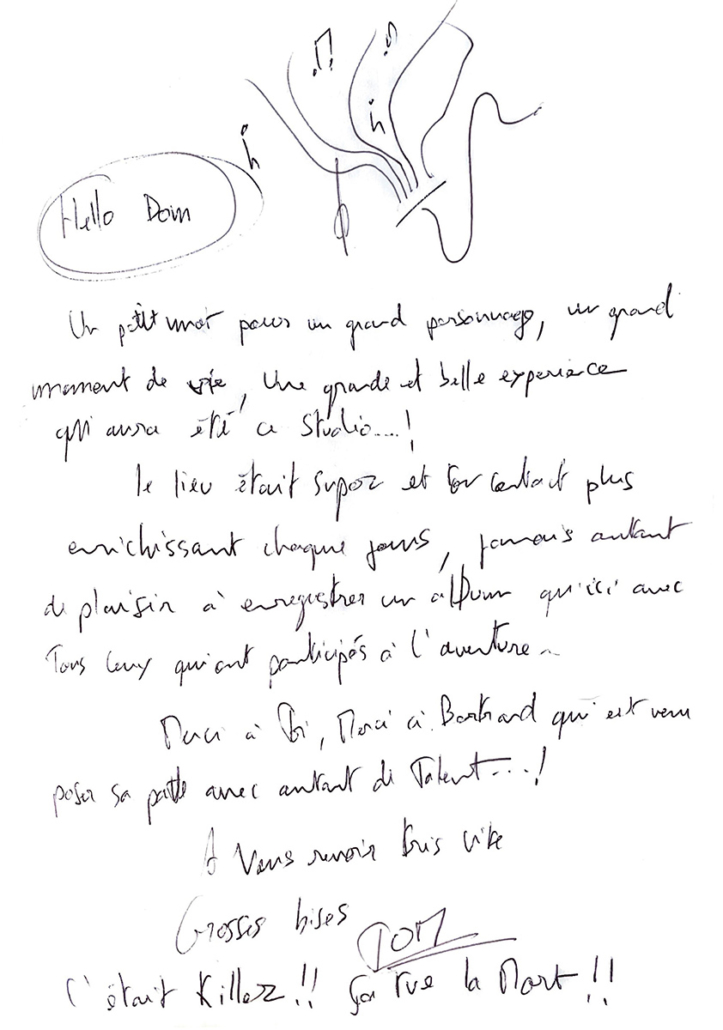 Hello Dom
Un petit mot pour un grand personnage, un grand
moment de vie, Une grande et belle experience
qui aura été ce Studio....!
le lieu était Super et ton contact plus
enrichissant chaque jours, jamais autant
de plaisir à enregistrer un album qu'ici avec
Tous ceux qui ont participés à l'aventure...
Merci à Toi, Merci à Bertrand qui est venu
poser sa patte avec autant de Talent....!
A Vous revoir très vite
Grosses bises
TOM
C'était Killer !! ça tue la Mort !!